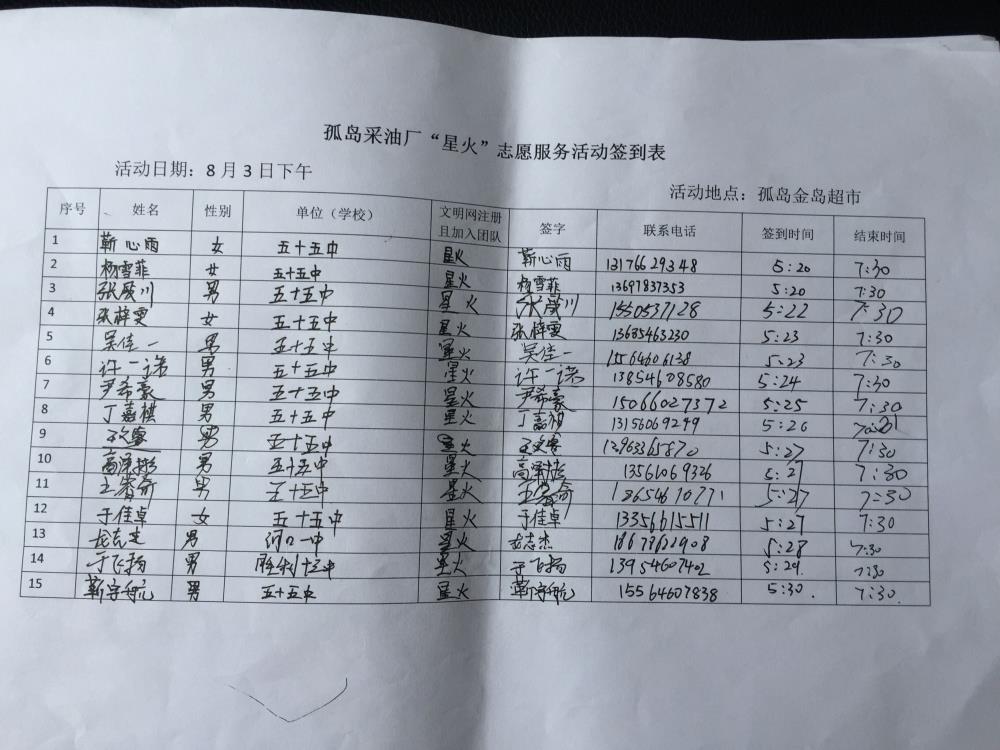 孤岛采油厂“星火”志愿服务活动签到表
活动日期：8月3日下午
活动地点：孤岛金岛超市
序号 姓名 性别 单位（学校） 文明网注册且加入团队 签字 联系电话 签到时间 结束时间
1 靳心雨 女 五十五中 星火 靳心雨 13176629348 5:20 7:30
2 杨雪菲 女 五十五中 星火 杨雪菲 13697837353 5:20 7:30
3 男 五十五中 星火 5:22 7:30
4 张梓雯 女 五十五中 星火 张梓雯 13685463230 5:23 7:30
5 吴佳一 男 五十五中 星火 吴佳一 5:23 7:30
6 许一诺 男 五十五中 星火 许一诺 13854608580 5:24 7:30
7 尹希豪 男 五十五中 星火 尹希豪 15066027372 5:25 7:30
8 丁嘉棋 男 五十五中 星火 丁嘉棋 13156069249 5:26
9 男 五十五中 星火 5:27 7:30
10 男 五十五中 星火 13561069326 5:27 7:30
11 男 五十五中 星火 5:27 7:30
12 于佳卓 女 五十五中 星火 于佳卓 13356615511 5:27 7:30
13 龙志杰 男 河口一中 星火 龙志杰 5:28 7:30
14 于飞扬 男 星火 于飞扬 13954607402 5:29 7:30
15 靳宇航 男 五十五中 星火 靳宇航 15564607838 5:30 7:30